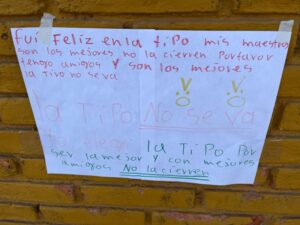 fui Feliz en la tipo mis maestros
son los mejores no la cierren Porfavor
tengo amigos Y son los mejores
la tivo no se va
la TiPo No se va
la TiPo Por
ser la mejor y con mejores
amigos No la cierren